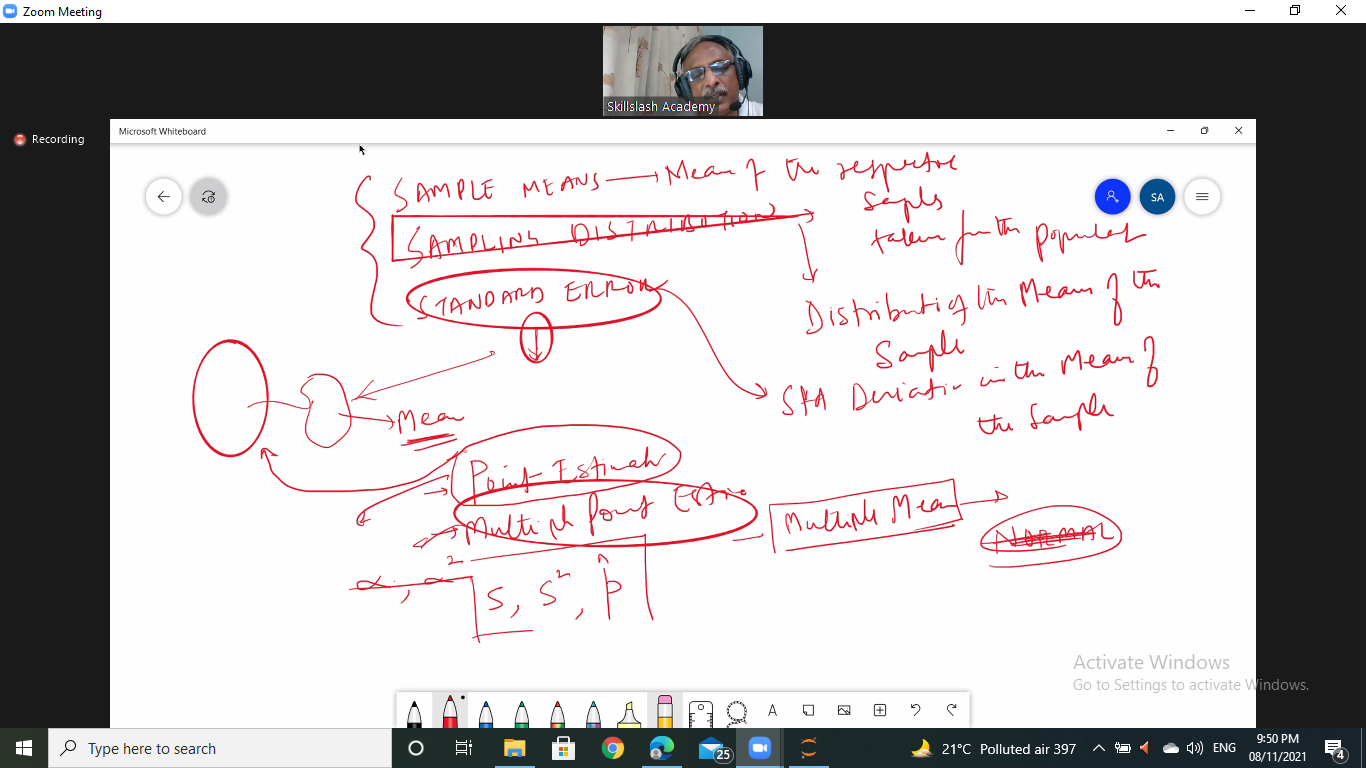 Zoom Meeting
Skillslash Academy
Recording
Microsoft Whiteboard
SA
SAMPLE MEANS → Mean of the respective
Samples
taken from the Populat
SAMPLING DISTRIBUTION
STANDARD ERROR
Distributi of the Mean of the
Sample
Std Deviation in the Mean of
the Sample
Mean
Point Estimate
Multiple Point
Multiple Mean
NORMAL
S, S², p̂
Activate Windows
Go to Settings to activate Windows.
A
Type here to search
25
21°C Polluted air 397
ENG
9:50 PM
08/11/2021
4